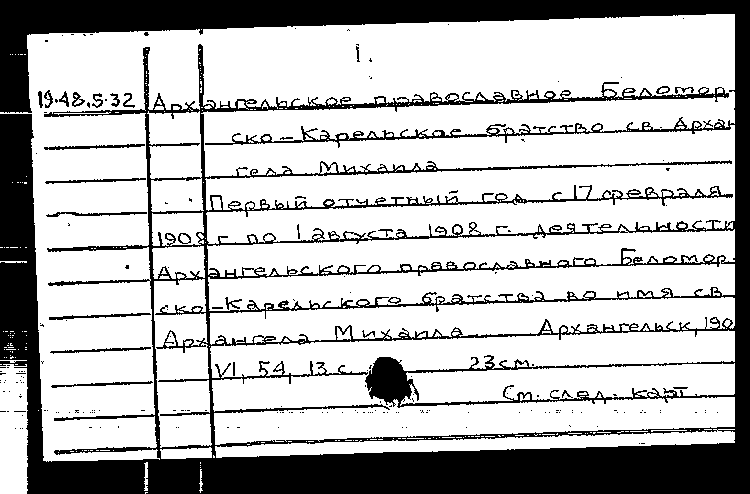 1.
19.48.5.32 Архангельское православное Беломор-
ско-Карельское братство св. Архан
гела Михаила
Первый отчетный год с 17 февраля
1908 г по 1 августа 1908 г. деятельности
Архангельского православного Беломор-
ско-Карельского братства во имя св
Архангела Михаила Архангельск, 190
VI, 54, 13 с 23 см.
См. след. карт